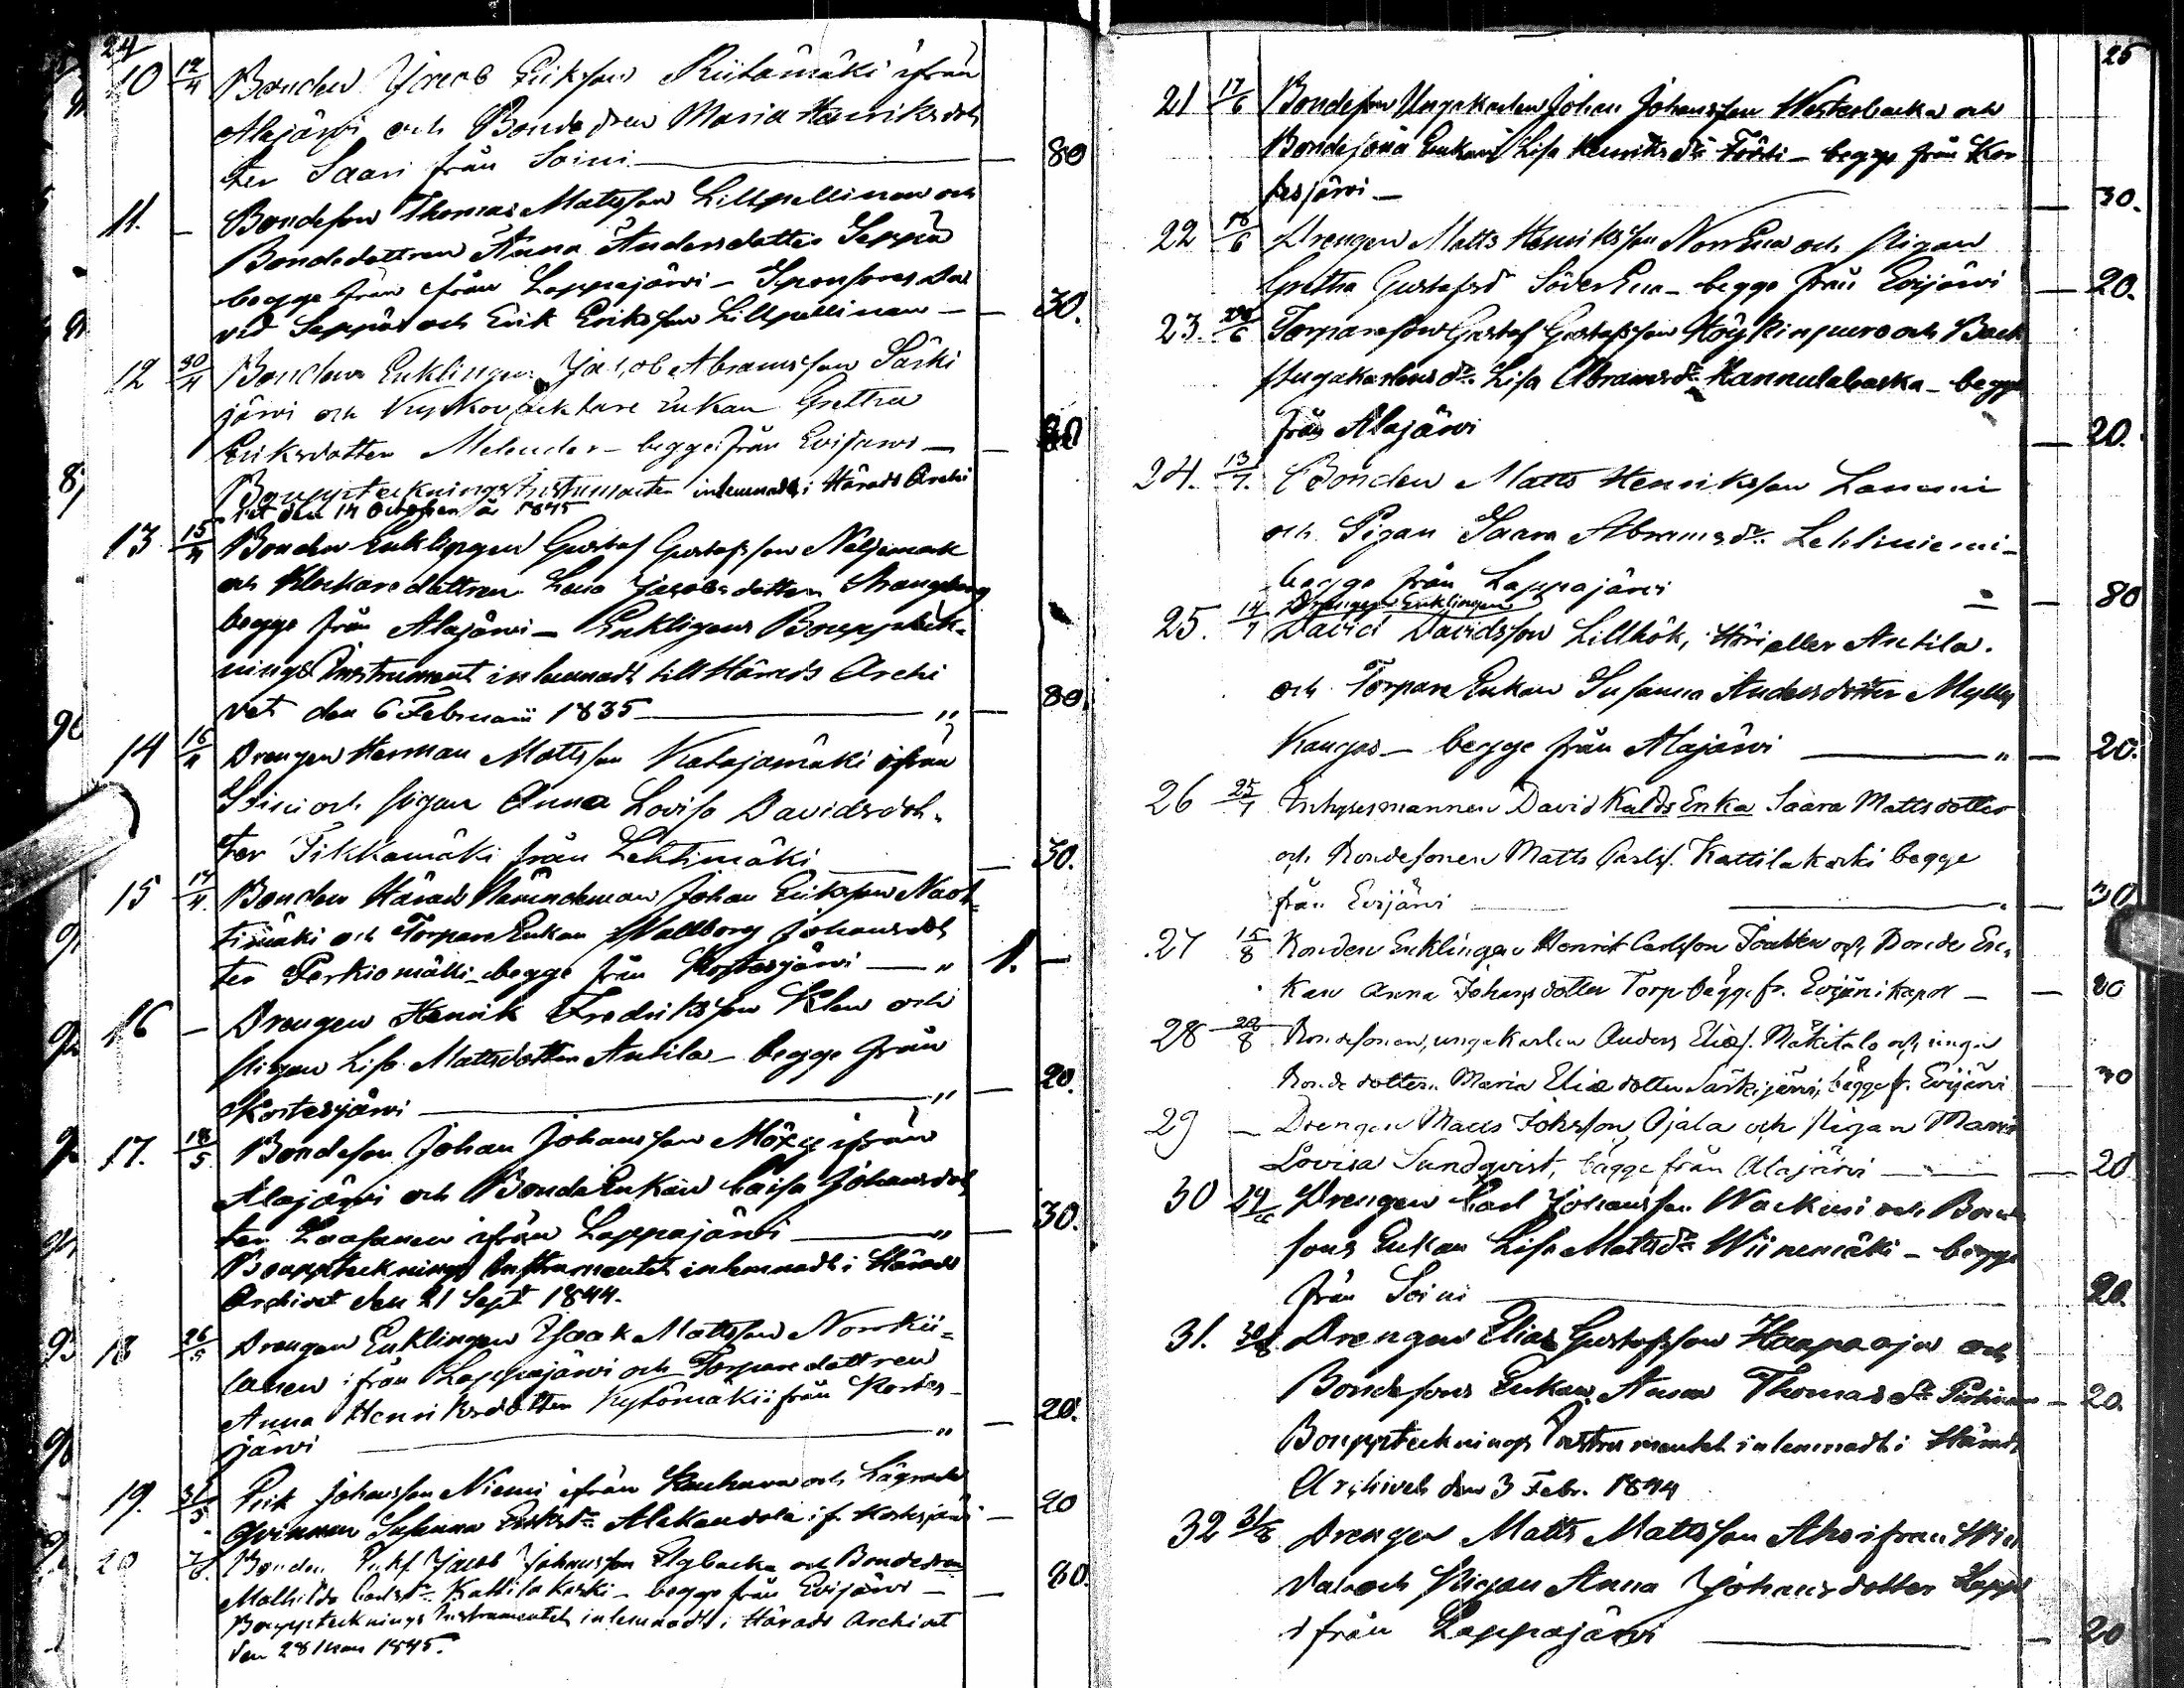 24
10 12/4 Bonden Jacob Eriksson Riitamäki ifrån
Alajärvi och Bondedren Maria Henriksdot
ter Saari från Soini — 80
11. — Bondeson Thomas Mattsson Lillpellinen och
Bondedottren Anna Andersdotter Seppä
begge från ifrån Lappajärvi — Sponsores Da
vid Seppä och Erik Eriksson Lillpellinen — 30.
12 30/4 Bonden Enklingen Jacob Abramsson Särki
järvi och Enkan Gretha
Eriksdotter Melender — begge från Evijärvi —
Bouppteckningsinstrumenten inlemnadt i Härads Archi
vet den 14 October år 1845
13 15/4 Bonden Enklingen Gustaf Gustafsson Näljemark
och Klockaredottren Lena Jacobsdotter Strangberg
begge från Alajärvi — Enklingens Bouppteck-
nings Instrument inlemnadt till Härads Archi
vet den 6 Februarii 1835 — " — 80.
14 16/4 Drengen Herman Mattsson Katajamäki ifrån
Soini och pigan Anna Lovisa Davidsdot-
ter Tikkamäki från Lehtimäki — 30.
15 17/4 Bonden Härads Nämndeman Johan Eriksson Naot-
timäki och Torpare Enkan Wallborg Johansdot
ter Perkiomäki begge från Kortesjärvi — " 1. —
16 — Drengen Henrik Fredriksson Klen och
pigan Lisa Mattsdotter Antila — begge från
Kortesjärvi — " — 20.
17. 18/5 Bondeson Johan Johansson Möxy ifrån
Alajärvi och Bonde Enkan Caisa Johansdot
ter Laasanen ifrån Lappajärvi — " — 30.
Bouppteknings Instrumentet inlemnadt i Härads
Archivet den 21 Sept 1844.
18 26/5 Drengen Enklingen Isaak Mattsson Norrkii-
lanen ifrån Lappajärvi och Torparedottren
Anna Henriksdotter Kytömäki ifrån Kortes-
järvi — " — 20.
19. 31/5 Erik Johansson Niemi ifrån Kauhava och Lägrade
Qvinnan Susanna Eriksdr Alakandola if. Kortesjärvi — 20
20 Bonden Enkl Jacob Johansson Elgbacka och Bondedren
Mathilda Carlsdr Kattilakoski — begge från Evijärvi — 80.
Boupptecknings Instrumentet inlemnadt i Härads Archivet
den 28 Mars 1845.
25
21 17/6 Bondeson Ungakarlen Johan Johansson Westerbacka och
Bondesöna Enkan Lisa Henriksdr Förti — begge från Kor
tesjärvi — 30.
22 18/6 Drengen Matts Henriksson Norr Ena och pigan
Gretha Gustafsd Söder Ena — begge från Evijärvi — 20.
23. Torparesson Gustaf Gustafsson Höykinpuro och Back
stugakarlens dr Lisa Abramsdr Kannulabacka — begge
från Alajärvi — 20.
24. 13/7. Bonden Matts Henriksson Lammi
och Pigan Saara Abramsdr Lehliniemi —
begge från Lappajärvi — 80
Drengen Enklingen
25. 14/7 David Davidsson Lillhök, Höri eller Antila.
och Torpare Enkan Susanna Andersdotter Mylly
Kangas — begge från Alajärvi — " — 20.
26 25/7 Inhysesmannen David Kalds Enka Saara Mattsdotter
och Bondesonen Matts Carlss. Kattilakoski begge
från Evijärvi — 30
27 15/8 Bonden Enklingen Henrik Carlsson och Bonde En-
kan Anna Johansdotter Torp bägge fr. Evijärvi kapell — 80
28 20/8 Bondesonen, ungakarlen Anders Eliæs. Mäkitalo och unga
Bonde dottern Maria Eliæ dotter Särkijärvi, bägge fr. Evijärvi — 30
29 — Drengen Matts Johsson Ojala och pigan Maria
Lovisa Sundqvist, bägge från Alajärvi — 20
30 Drengen Carl Johansson Wackuri och Bonde
sons Enkan Lisa Mattsdr Wiinemäki — begge
från Soini — 20.
31. Drengen Elias Gustafsson Haapaoja och
Bondesons Enkan Anna Thomasdr — 20.
Boupptecknings Instrumentet inlemnadt i Härads
Archivet den 3 Febr. 1844
32 Drengen Matts Mattsson Aho ifrån Win
dala och Pigan Anna Johansdotter Lappi
ifrån Lappajärvi — 20